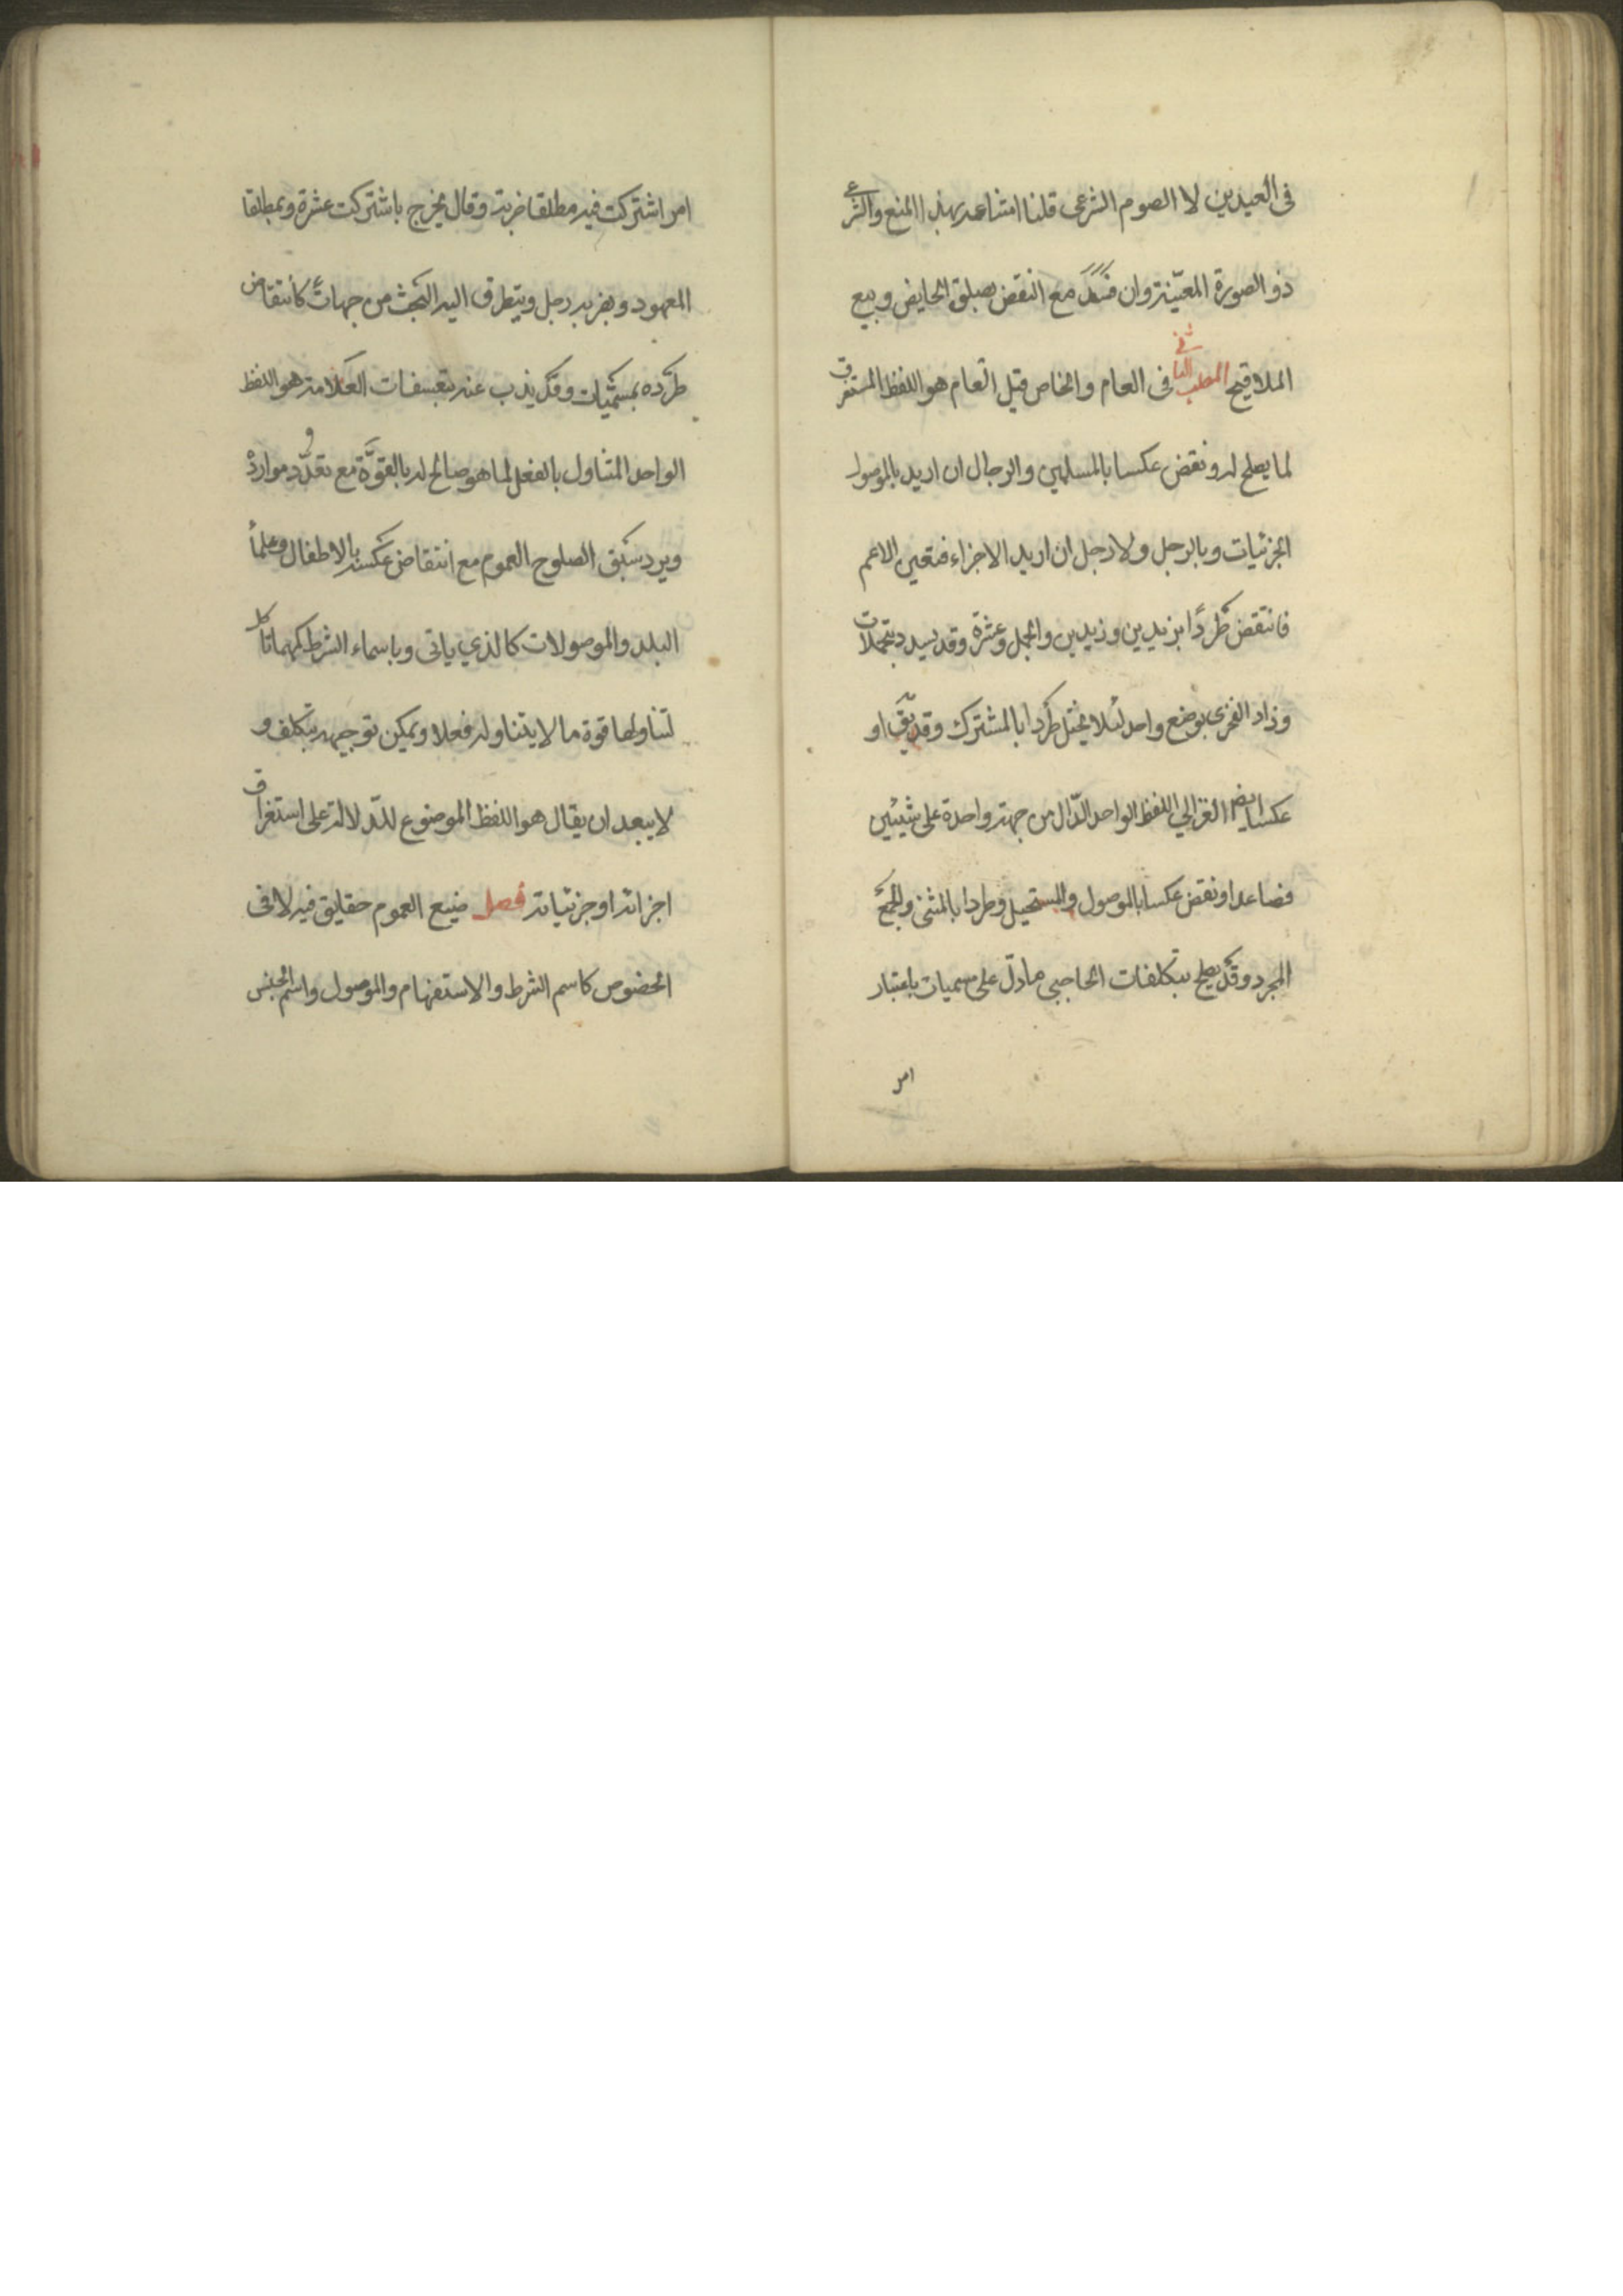 فى العيدين لا الصوم الشرعى قلنا امتناعه بهذا المنع والشرعى
ذو الصورة المعينة وان فسد مع النقض بصلوة الحايض وبيع
الملاقيح المطلب الثانى فى العام والخاص قيل العام هو اللفظ المستغرق
لما يصلح له ونقض عكسا بالمسلمين والرجال ان اريد بالموصول
الجزئيات وبالرجل ولا رجل ان اريد الاجزاء فتعين الاعم
فانتقض طردًا بزيدين وزيدين والجمل وعشرة وقد يسدد بتمحلات
وزاد الفخرى بوضع واحد لئلا يختل طردا بالمشترك وقد يق او
عكسا ايضا الغزالي اللفظ الواحد الدّال من جهة واحدة على شيئين
فصاعدا ونقض عكسا بالموصول والمستحيل وطردا بالمثنى والجمع
المجرد وقد يصلح بتكلفات الحاجبى ما دلّ على مسميات باعتبار
امر
امر اشتركت فيه مطلقا ضربة وقال يخرج باشتركت عشرة وبمطلقا
المعهود وبضربه رجل ويتطرق اليه البحث من جهات كانتقاض
طرده بمسميات وقد يذب عنه بتعسفات العلامة هو اللفظ
الواحد المتناول بالفعل لما هو صالح له بالقوّة مع تعدّد موارده
ويرد سبق الصلوح العموم مع انتقاض عكسه بالاطفال وعلماء
البلد والموصولات كالذي ياتى وباسماء الشرط كمهما تاكل
لتناولها قوة ما لا يتناوله فعلا ويمكن توجيهه بتكلف و
لا يبعد ان يقال هو اللفظ الموضوع للدّلالة على استغراق
اجزائه او جزئياته فصل صيغ العموم حقايق فيه لا فى
الخصوص كاسم الشرط والاستفهام والموصول واسم الجنس